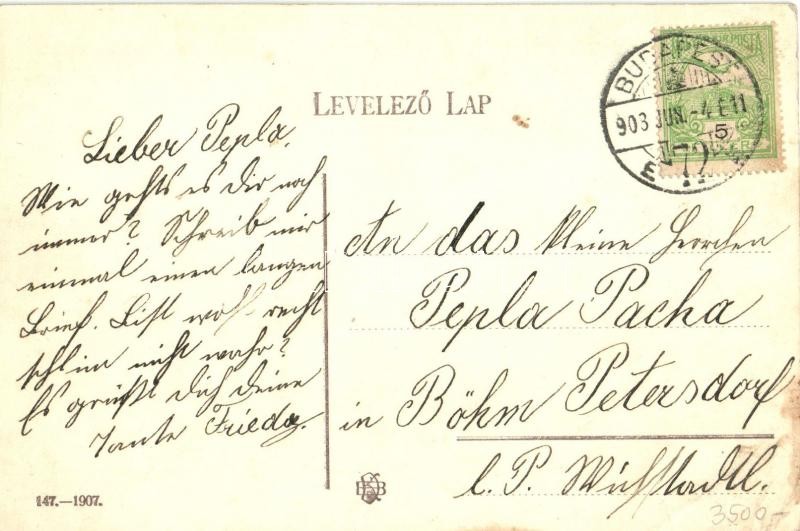 LEVELEZŐ LAP
BUDAPEST
903 JUN. -4 E 11
72
5
Lieber Pepla,
Wie gehts es dir noch
immer? Schreib mir
einmal einen langen
Brief. Bist wohl recht
schlim nicht wahr?
Es grüßt dich deine
Tante Frieda.
An das kleine Herrchen
Pepla Pacha
in Böhm Petersdorf
l. P.
147.—1907.
3500,-